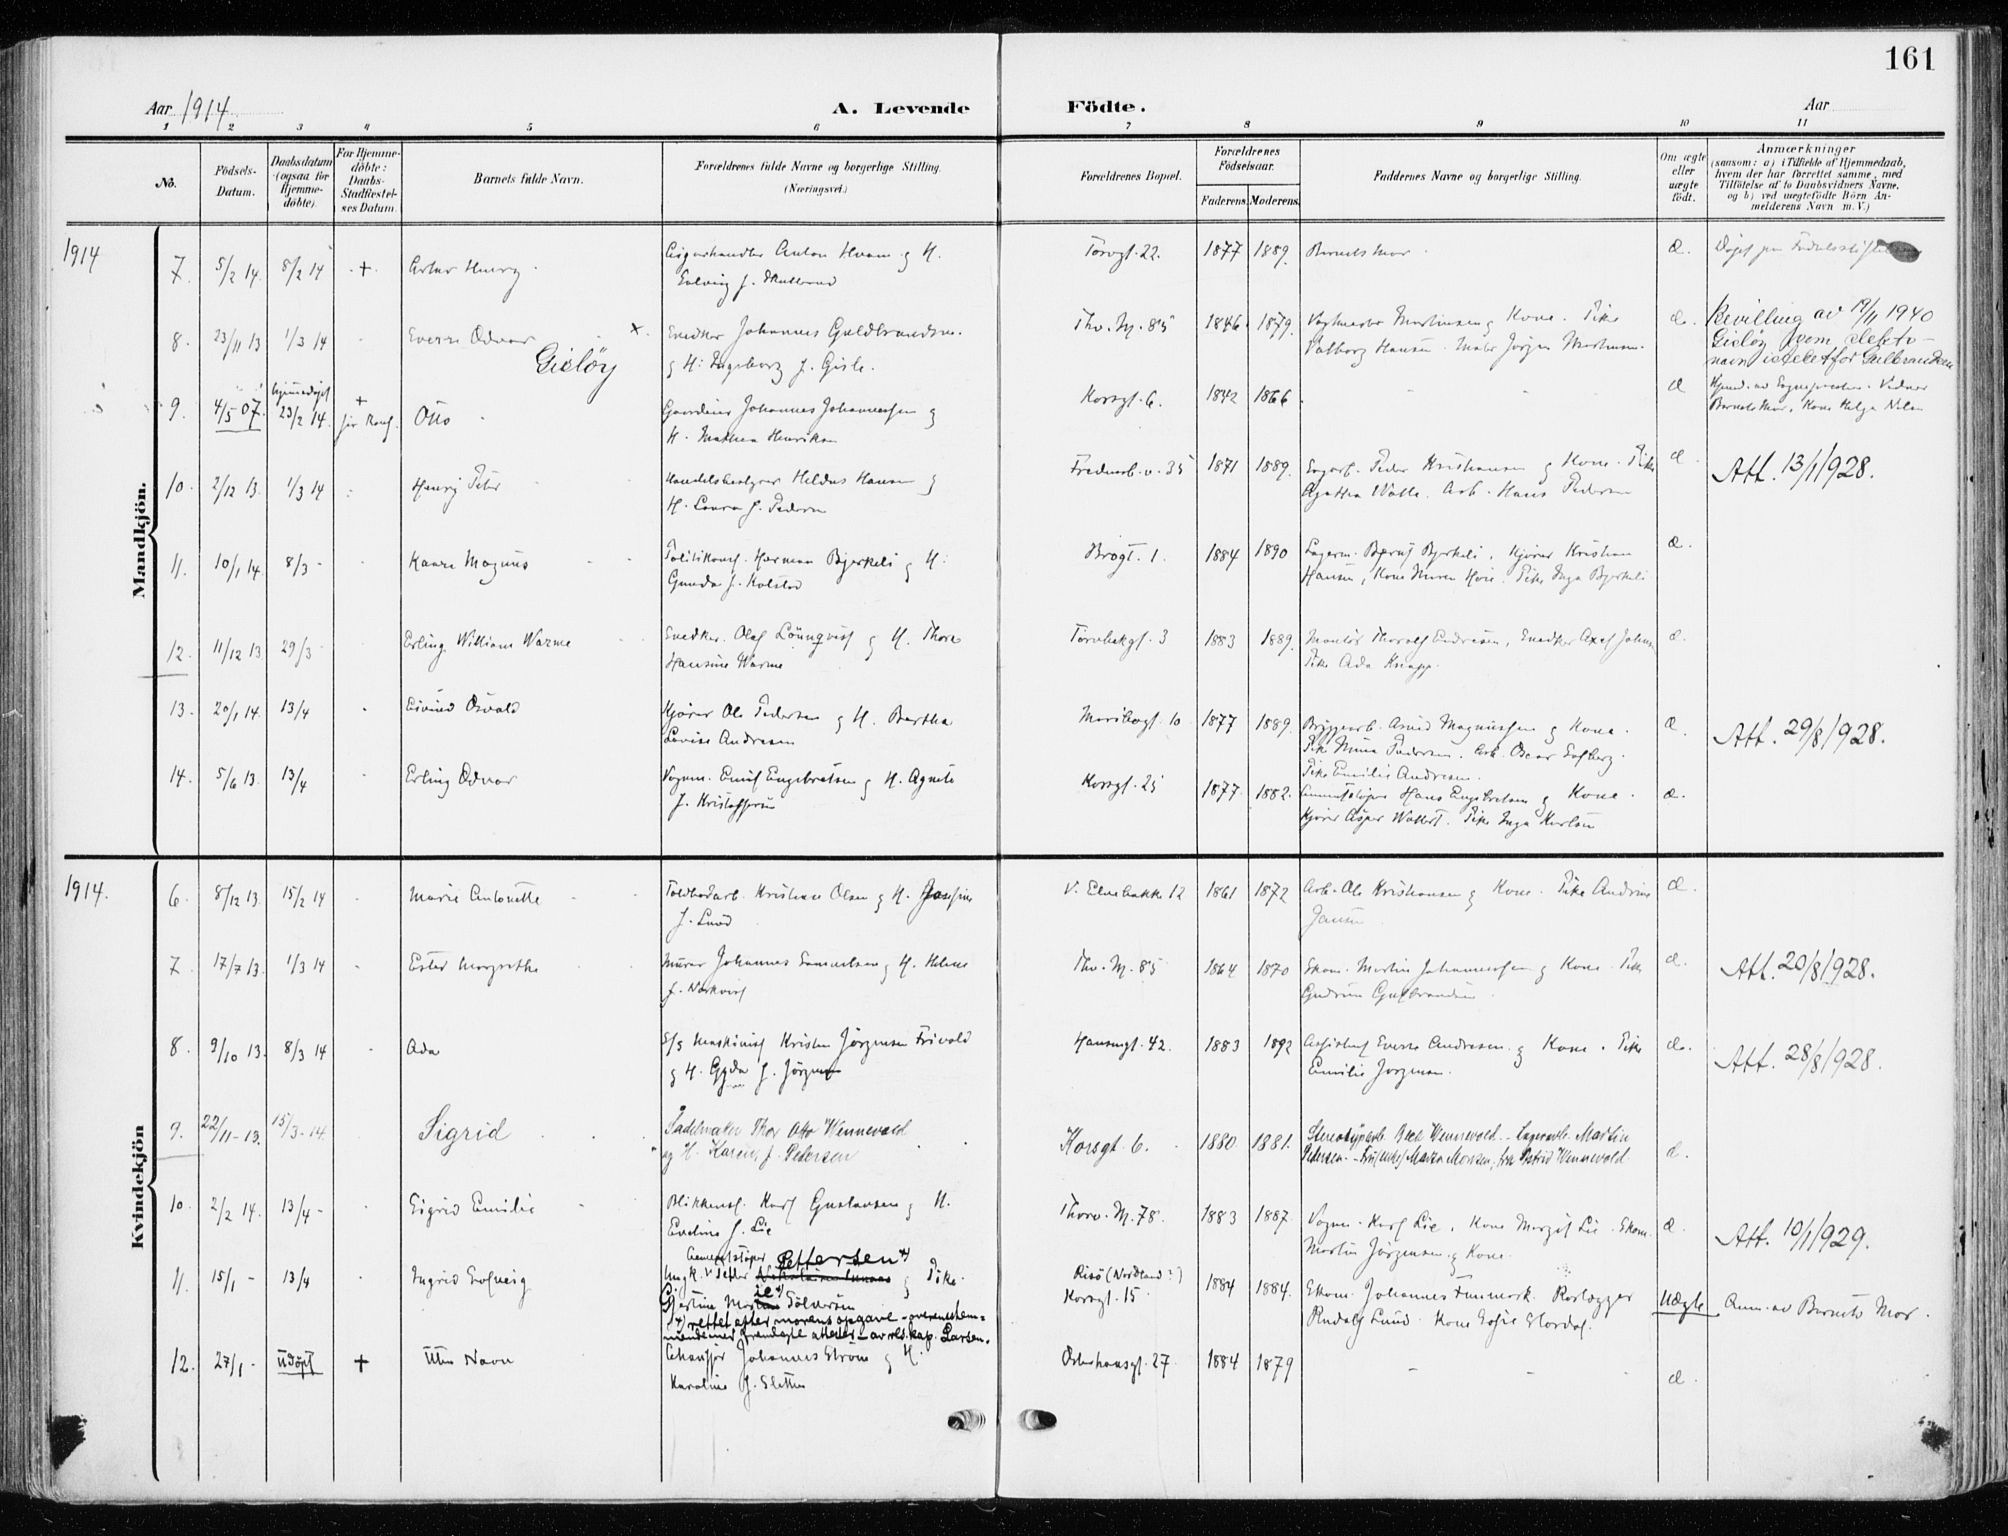 161
Aar 1914
A. Levende
Födte.
Aar
1 2 3 4 5 6 7 8 9 10 11
No.
Födsels-
Datum.
Daabsdatum
(ogsaa for
Hjemme-
döbte).
For Hjemme-
döbte:
Daabs-
Stadfæstel-
ses Datum.
Barnets fulde Navn.
Forældrenes fulde Navne og borgerlige Stilling.
(Næringsvei.)
Forældrenes Bopæl.
Forældrenes
Födselsaar.
Faderens. Moderens.
Faddernes Navne og borgerlige Stilling.
Om ægte
eller
uægte
født.
Anmærkninger
(saasom: a) i Tilfælde af Hjemmedaab,
hvem der har forrettet samme, med
Tilföielse af to Daabsvidners Navne,
og b) ved uægtefödte Börn An-
melderens Navn m. V.)
Mandkjön.
1914
7. 5/2 14. 8/2 14 + Artur Henry
Cigarhandler Anton Hvam og H.
Solveig f.
Torvgt. 22. 1877 1889. Barnets Mor. æ.
8. 23/11 13 1/3 14 Sverre Odvar x.
Gislöy
Snedker Johannes Guldbrandsen
og H. Ingeborg f. Gisle.
Thv. M. 85 1846 1879. Vagtmester Martinsen og Kone. Pike
Valborg Hansen. Maler Jörgen Martinsen. æ.
Bevilling av 19/11 1940
Gislöy som slekts-
navn istedetfor Gulbrandsen
9. 4/5 07. hjemmedöpt
23/2 14. + Otto
Gaardeier Johannes Johannessen og
H. Mathea Henriksen
Korsgt. 6. 1842 1866 æ
Hjemd. av Sognepresten. Vidner
Barnets Mor, Kone Helga Nilsen
10. 2/12 13. 1/3 14 Henry Peter
Handelsbestyrer Hildus Hansen og
H. Laura f. Pedersen
Fredensb. v. 35 1871 1889. Peder Kristiansen og Kone. Pike
Agathe Walle. Arb. Hans Pedersen æ.
Att. 13/1 1928.
11. 10/1 14. 8/3 - Kaare Magnus
Politikonst. Herman Bjerkeli og H.
Gunda f. Kolstad
Brogt. 1. 1884 1890 Lagerm. Bernt Bjerkeli, Kjörer Kristian
Hansen, Kone Maren Hoie. Pike Inga Bjerkeli æ.
12. 11/12 13 29/3 Erling William Warme
Snedker. Olaf Lönnqvist og H. Thora
Hansine Warme
Torvbakgt. 3 1883 1889. Montör Thoralf Endresen, Snedker Axel Johnsen
Pike Ada Knapp. æ.
13. 20/1 14. 13/4 Eivind Osvald
Kjörer Ole Pedersen og H. Bertha
Lovise Andresen
Maribogt. 10 1877 1889. Bryggearb. Magnussen og Kone.
Pike Mina Pedersen. Arb. Oscar Solberg.
Pike Emilie Andresen. æ.
Att. 29/8 1928.
14. 5/6 13. 13/4 Erling Odvar
Vognm. Emil Engebretsen og H. Agnete
f. Kristoffersen
Korsgt. 25 1877 1882. Cementstöper Hans Engebretsen og Kone.
Kjörer Asper Pike Inga Karlsen æ.
Kvindekjön
1914.
6. 8/12 13. 15/2 14 Marie Antonette
Toldbodarb. Kristian Olsen og H. Josefine
f. Lund
V. Elvebakke 12 1861 1872 Arb. Ole Kristiansen og Kone. Pike Andrine
Jansen æ.
7. 17/7 13. 1/3 14 Ester Margrethe
Murer Johannes Samuelsen og H. Helene
f. Norkvist
Thv. M. 85 1864 1870 Ekom. Martin Johannessen og Kone. Pike
Gudrun Gulbrandsen æ.
Att. 20/8 1928.
8. 9/10 13. 8/3 14 Ada
S/S Maskinist Kristen Jörgensen Frivold
og H. Gyda f. Jörgensen
Hausmgt. 42. 1883 1892 Assistent Sverre Andresen og Kone. Pike
Emilie Jörgensen. æ.
Att. 28/8 1928.
9. 22/11-13. 15/3-14. Sigrid
Sadelmaker Thor Otto Wennevold
og H. Karen, f. Petersen
Korsgt. 6. 1880 1881. Stereotyparb. Wennevold. - Lagerarb. Martin
Pedersen. - Monsen, frk. Astrid Wennevold. æ.
10. 2/2 14. 13/4 - Sigrid Emilie
Blikkensl. Karl Gustavsen og H.
Eveline f. Lie
Thorv. M. 78. 1883 1887 Vognm. Karl Lie, Kone Margit Lie. Ekom.
Martin Jörgensen og Kone. æ.
Att. 10/1 1929.
11. 15/1 - 13/4 Ingrid Solveig
Cementstöper Pettersen x)
Ungk. Petter og Pike.
Gjertine Sölversen
x) rettet efter morens opgave - overensstem-
mende med fremlagte attester - av res. kap. Larsen.
Risö (Nordland?)
Korsgt. 15 1884 1884. Ekom. Johannes Finmark. Rörlægger
Rudolf Lund. Kone Sofie Stordal. Uægte Anm. av Barnets Mor.
12. 27/1 - Udöpt + Uten Navn
Chaufför Johannes Ström og H.
Karoline f. Sletten
Osterhausgt. 27. 1884 1879 æ.